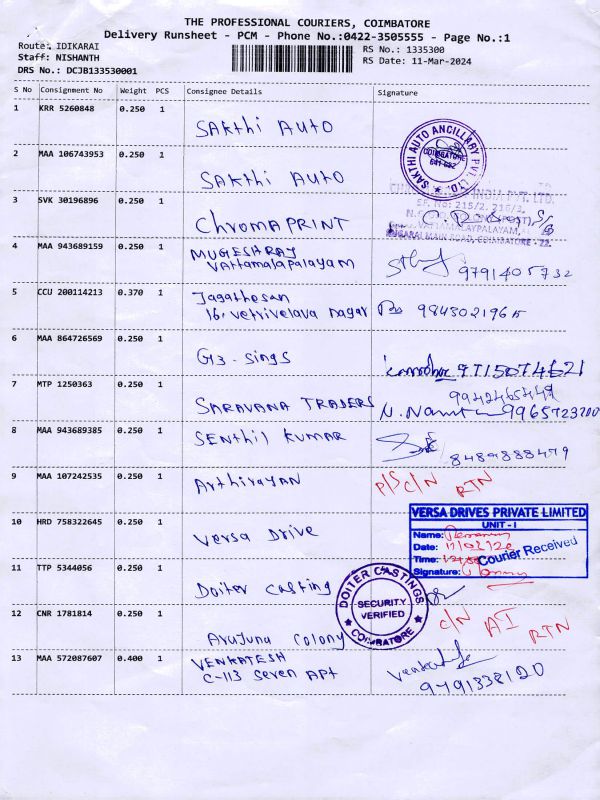 THE PROFESSIONAL COURIERS, COIMBATORE
Delivery Runsheet - PCM - Phone No.:0422-3505555 - Page No.:1
Route: IDIKARAI
Staff: NISHANTH
DRS No.: DCJB133530001
RS No.: 1335300
RS Date: 11-Mar-2024
S No Consignment No Weight PCS Consignee Details Signature
1 KRR 5260848 0.250 1 SAKthi AUTO
SAKTHI AUTO ANCILLARY PVT. LTD. COIMBATORE 641-032
2 MAA 106743953 0.250 1 SAKthi AUTO
3 SVK 30196896 0.250 1 ChromAPRINT
4 MAA 943689159 0.250 1 MUGESHRAJ
VAttamalapalayam
9791405732
5 CCU 200114213 0.370 1 Jagathesan
16, vetrivelava nagar
984302196
6 MAA 864726569 0.250 1 G13. sings
9715074621
7 MTP 1250363 0.250 1 SARAVANA TRADERS
9942465449
9965723700
8 MAA 943689385 0.250 1 SENthil KUMAR
8489888479
9 MAA 107242535 0.250 1 Arthirayan
P/S C/N RTN
10 HRD 758322645 0.250 1 Versa Drive
VERSA DRIVES PRIVATE LIMITED
UNIT - I
Name:
Date:
Time:
Courier Received
Signature:
11 TTP 5344056 0.250 1 Doiter casting
DOITER CASTINGS
SECURITY
VERIFIED
COIMBATORE
12 CNR 1781814 0.250 1 Arajuna colony
C/N AI RTN
13 MAA 572087607 0.400 1 VENKATESH
C-113 seven APt
Venkat
9791338120